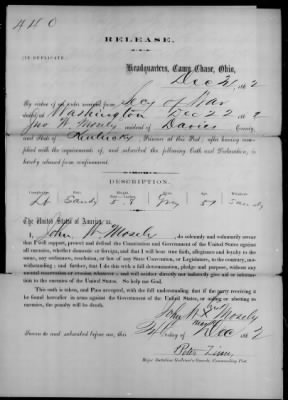 RELEASE.
[IN DUPLICATE.]
Headquarters, Camp Chase, Ohio,
Dec 186 2
By virtue of an order received from Secy of War
dated at Washington Dec 22 186 2
Jno W. Mosely resident of Davies County,
and State of Kentucky Prisoner at this Post; after having
complied with the requirements of, and subscribed the following Oath and Declaration, is
hereby released from confinement.
DESCRIPTION.
Lt Sandy 5. 8 Sandy
The United States of America, ss.
I, John W Mosely, do solemnly and voluntarily swear
that I will support, protect and defend the Constitution and Government of the United States against
all enemies, whether domestic or foreign, and that I will bear true faith, allegiance and loyalty to the
same, any ordinance, resolution, or law of any State Convention, or Legislature, to the contrary, not-
withstanding; and further, that I do this with a full determination, pledge and purpose, without any
mental reservation or evasion whatever; and will neither directly nor indirectly give aid or information
to the enemies of the United States. So help me God.
This oath is taken, and Pass accepted, with the full understanding that if the party receiving it
be found hereafter in arms against the Government of the United States, or aiding or abetting its
enemies, the penalty will be death.
John W Mosely
Sworn to and subscribed before me, this day of Dec 186 2
Peter Zinn
Major Battalion Governor's Guards, Commanding Post.